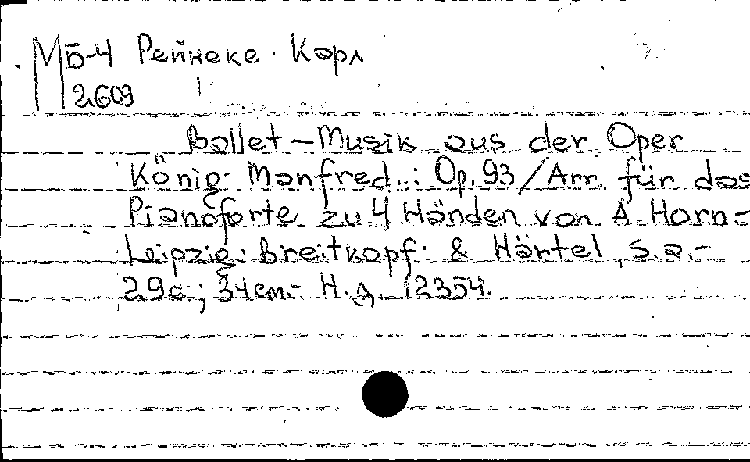 Мб-4 Рейнеке Карл
2609
Ballet-Musik aus der Oper
König Manfred.: Op. 93/Arr. für das
Pianoforte zu 4 Händen von A. Horn-
Leipzig: Breitkopf & Härtel, s.a.-
29c; 34cm.- Н.д. 12354.